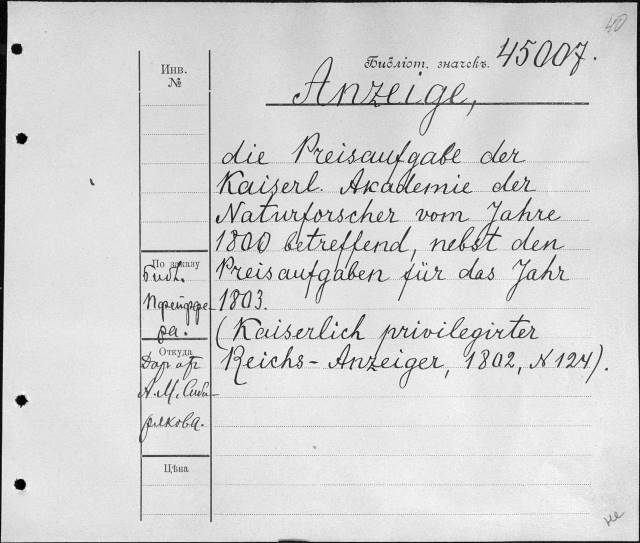 40
Библіот. значекъ. 45007.
Инв.
№
Anzeige,
die Preisaufgabe der
Kaiserl. Akademie der
Naturforscher vom Jahre
1800 betreffend, nebst den
Preisaufgaben für das Jahr
1803.
(Kaiserlich privilegirter
Reichs-Anzeiger, 1802, N 124).
По заказу
Библ.
Пфейффе-
ра.
Откуда
Дар от
А. М. Сиби-
рякова.
Цѣна